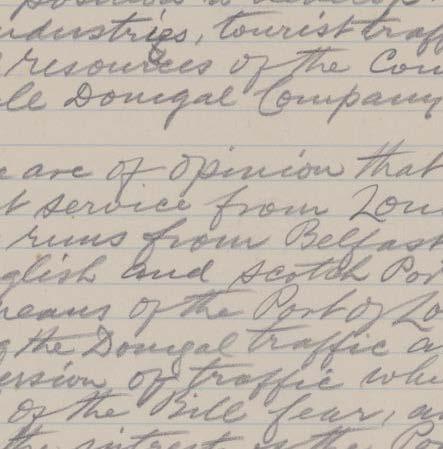 industries, tourist traff
resources of the Cou
Donegal Company
are of opinion that
t service from Lon
runs from Belfast
glish and Scotch Por
means of the Port of Lo
the Donegal traffic a
ersion of traffic whi
of the Bill fear, a
the interest of the Po